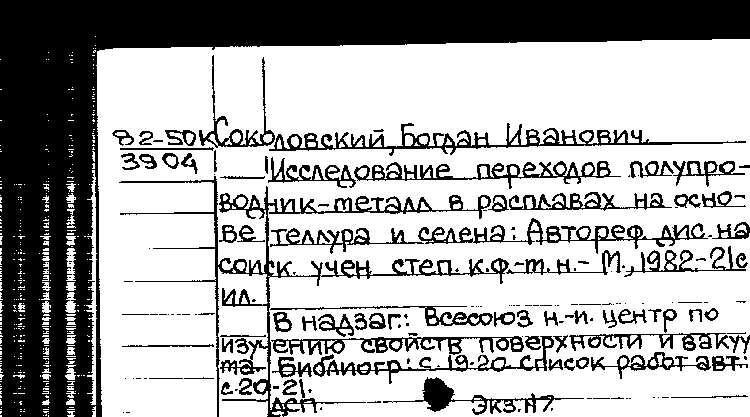 82-50К Соколовский, Богдан Иванович.
3904 Исследование переходов полупро-
водник-металл в расплавах на осно-
ве теллура и селена: Автореф. дис. на
соиск. учен. степ. к.ф.-т. н.- М., 1982.-21с
ил.
В надзаг.: Всесоюз. н.-и. центр по
изучению свойств поверхности и вакуу
ма. Библиогр.: с. 19-20. Список работ авт.:
с.20-21.
ДСП. Экз.№7